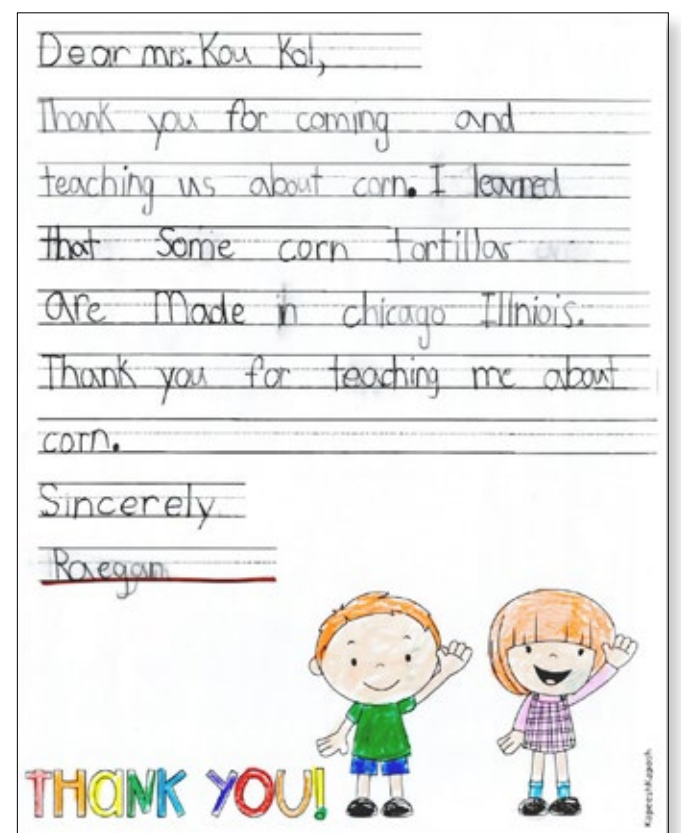 Dear mrs. Kou Kol,
Thank you for coming and
teaching us about corn. I learned
that Some corn tortillas are
are Made in chicago Illniois.
Thank you for teaching me about
corn.
Sincerely
Raegan
THANK YOU!
KapeeshKaposh